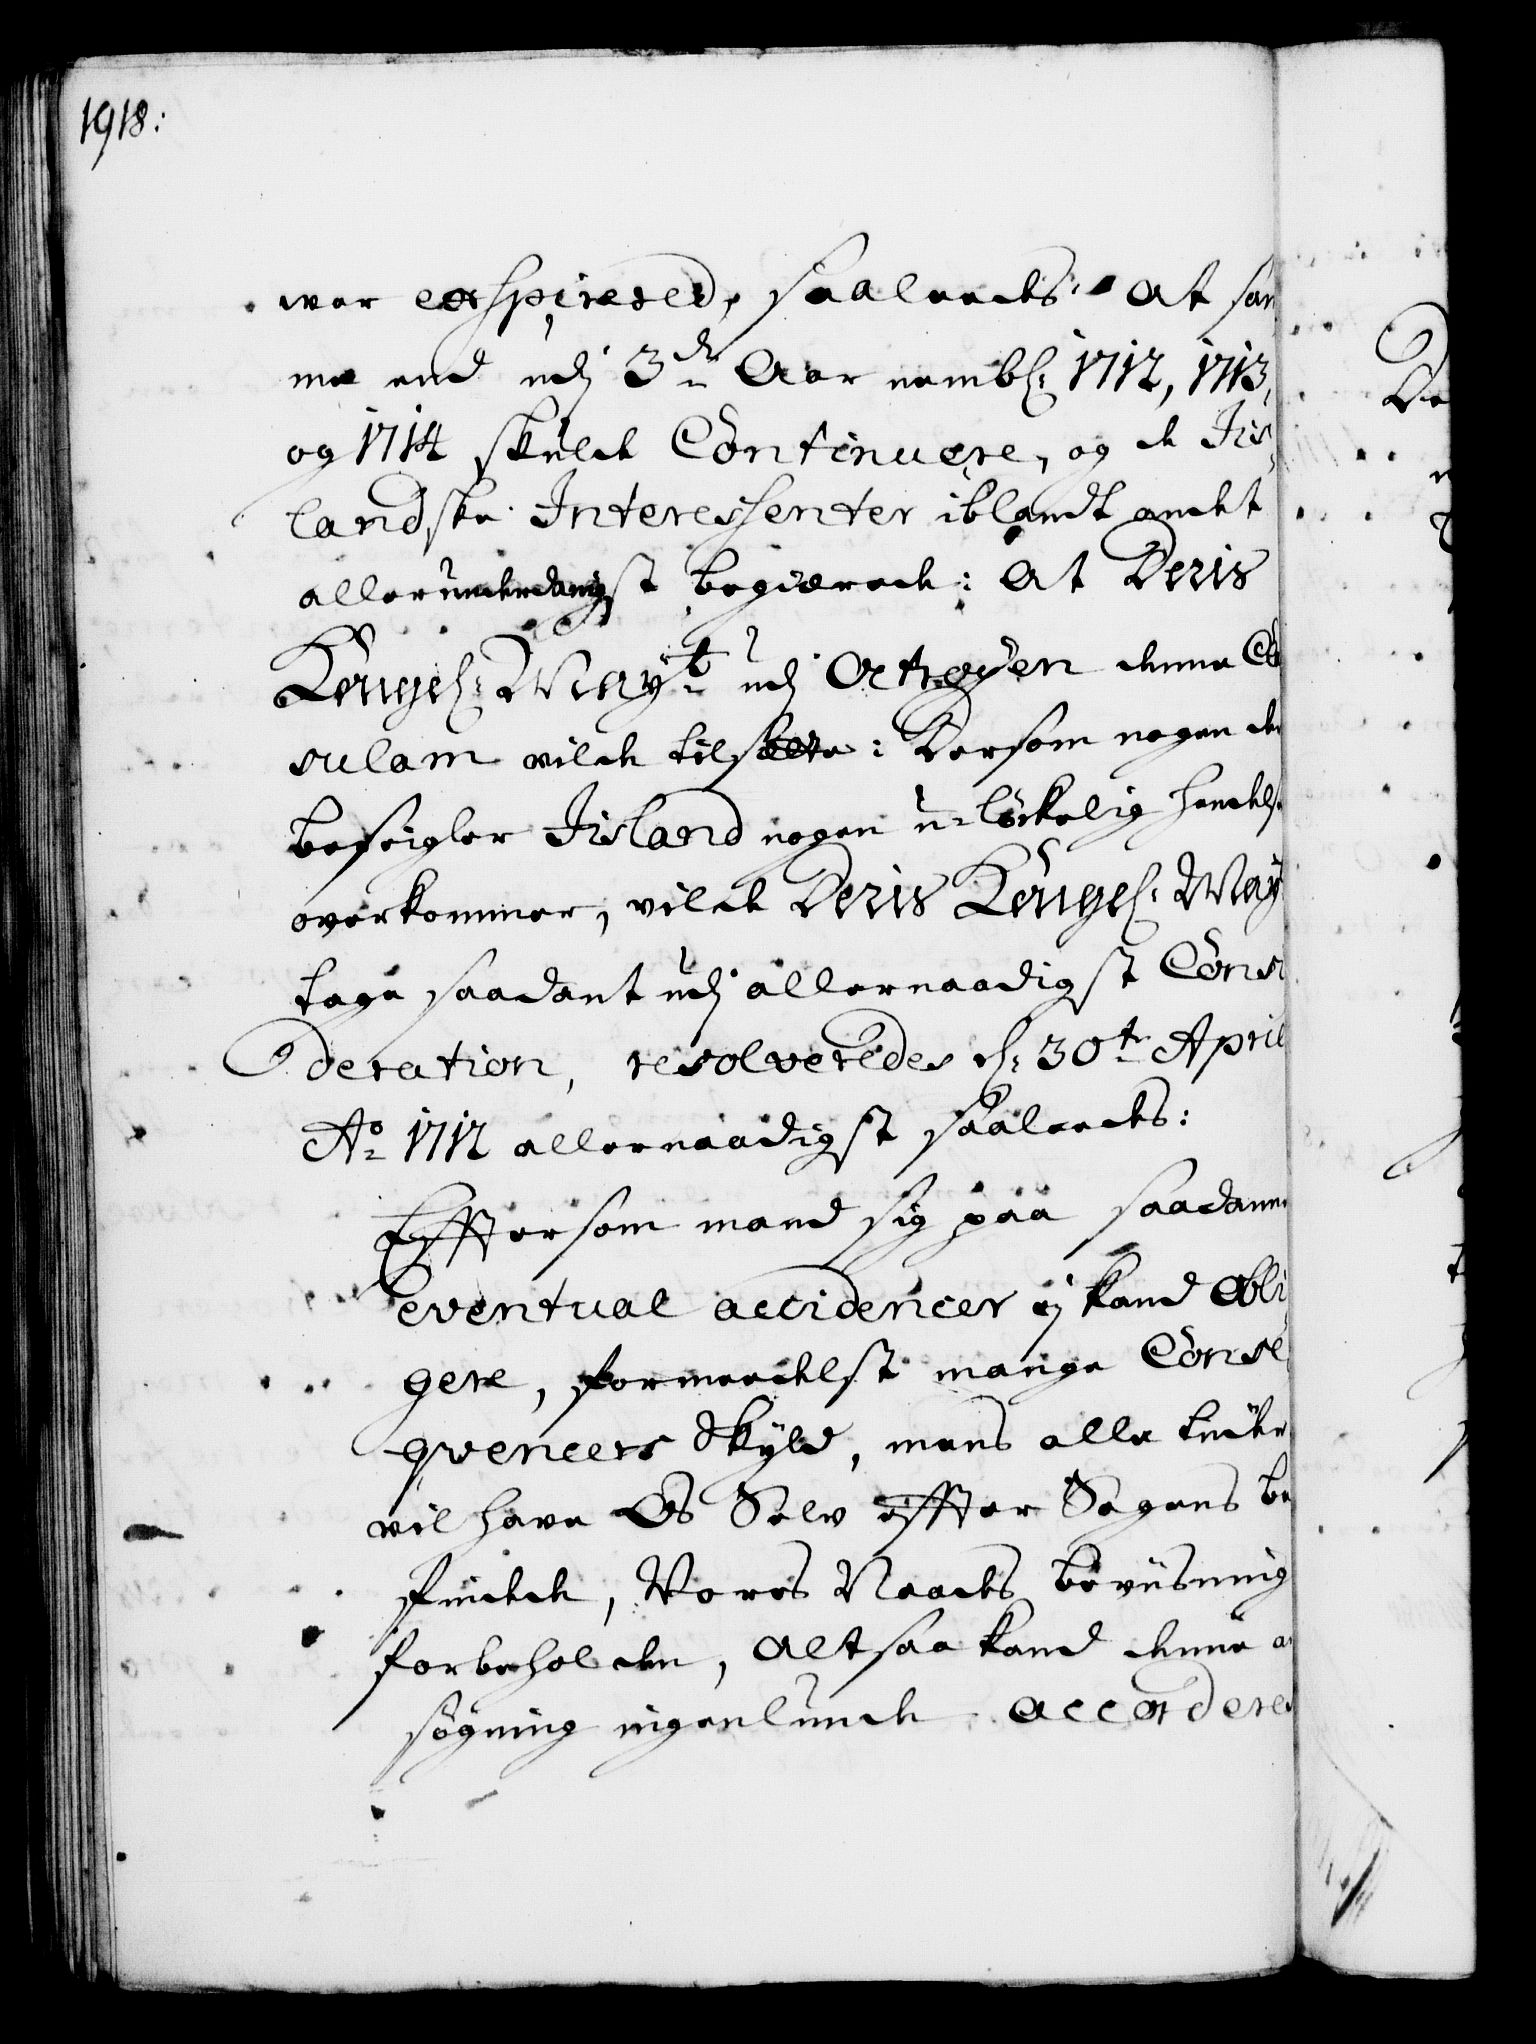 1918:
war exspirered, saaleedis: At sam
me end udj 3de Aar nembl: 1712, 1713,
og 1714 skulde Continuere, og de Iis
landske Interessenter iblandt andet
allerunderdanigst begierede: At Deris
Kongel: Mayt: udj Octroyen denne Cla
sulam vilde tilsette: Dersom nogen der
beseigler Iisland nogen u-lökelig hendelse
overkommer, vilde Deris Kongel: May
tage saadant udj allernaadigst Consi
deration, resolveredes d: 30te April
Ao 1712 allernaadigst saaledis:
Effter som mand sig paa saadanne
eventual accidencer ej kand obli
gere, formedelst mange Conse
qvencers Skyld, mens alle tider
vil have Os Selv effter Sagens be
findende, Vores Naadis beviisning
forbeholden, Altsaa kand denne an
søgning ingenlunde accorderes